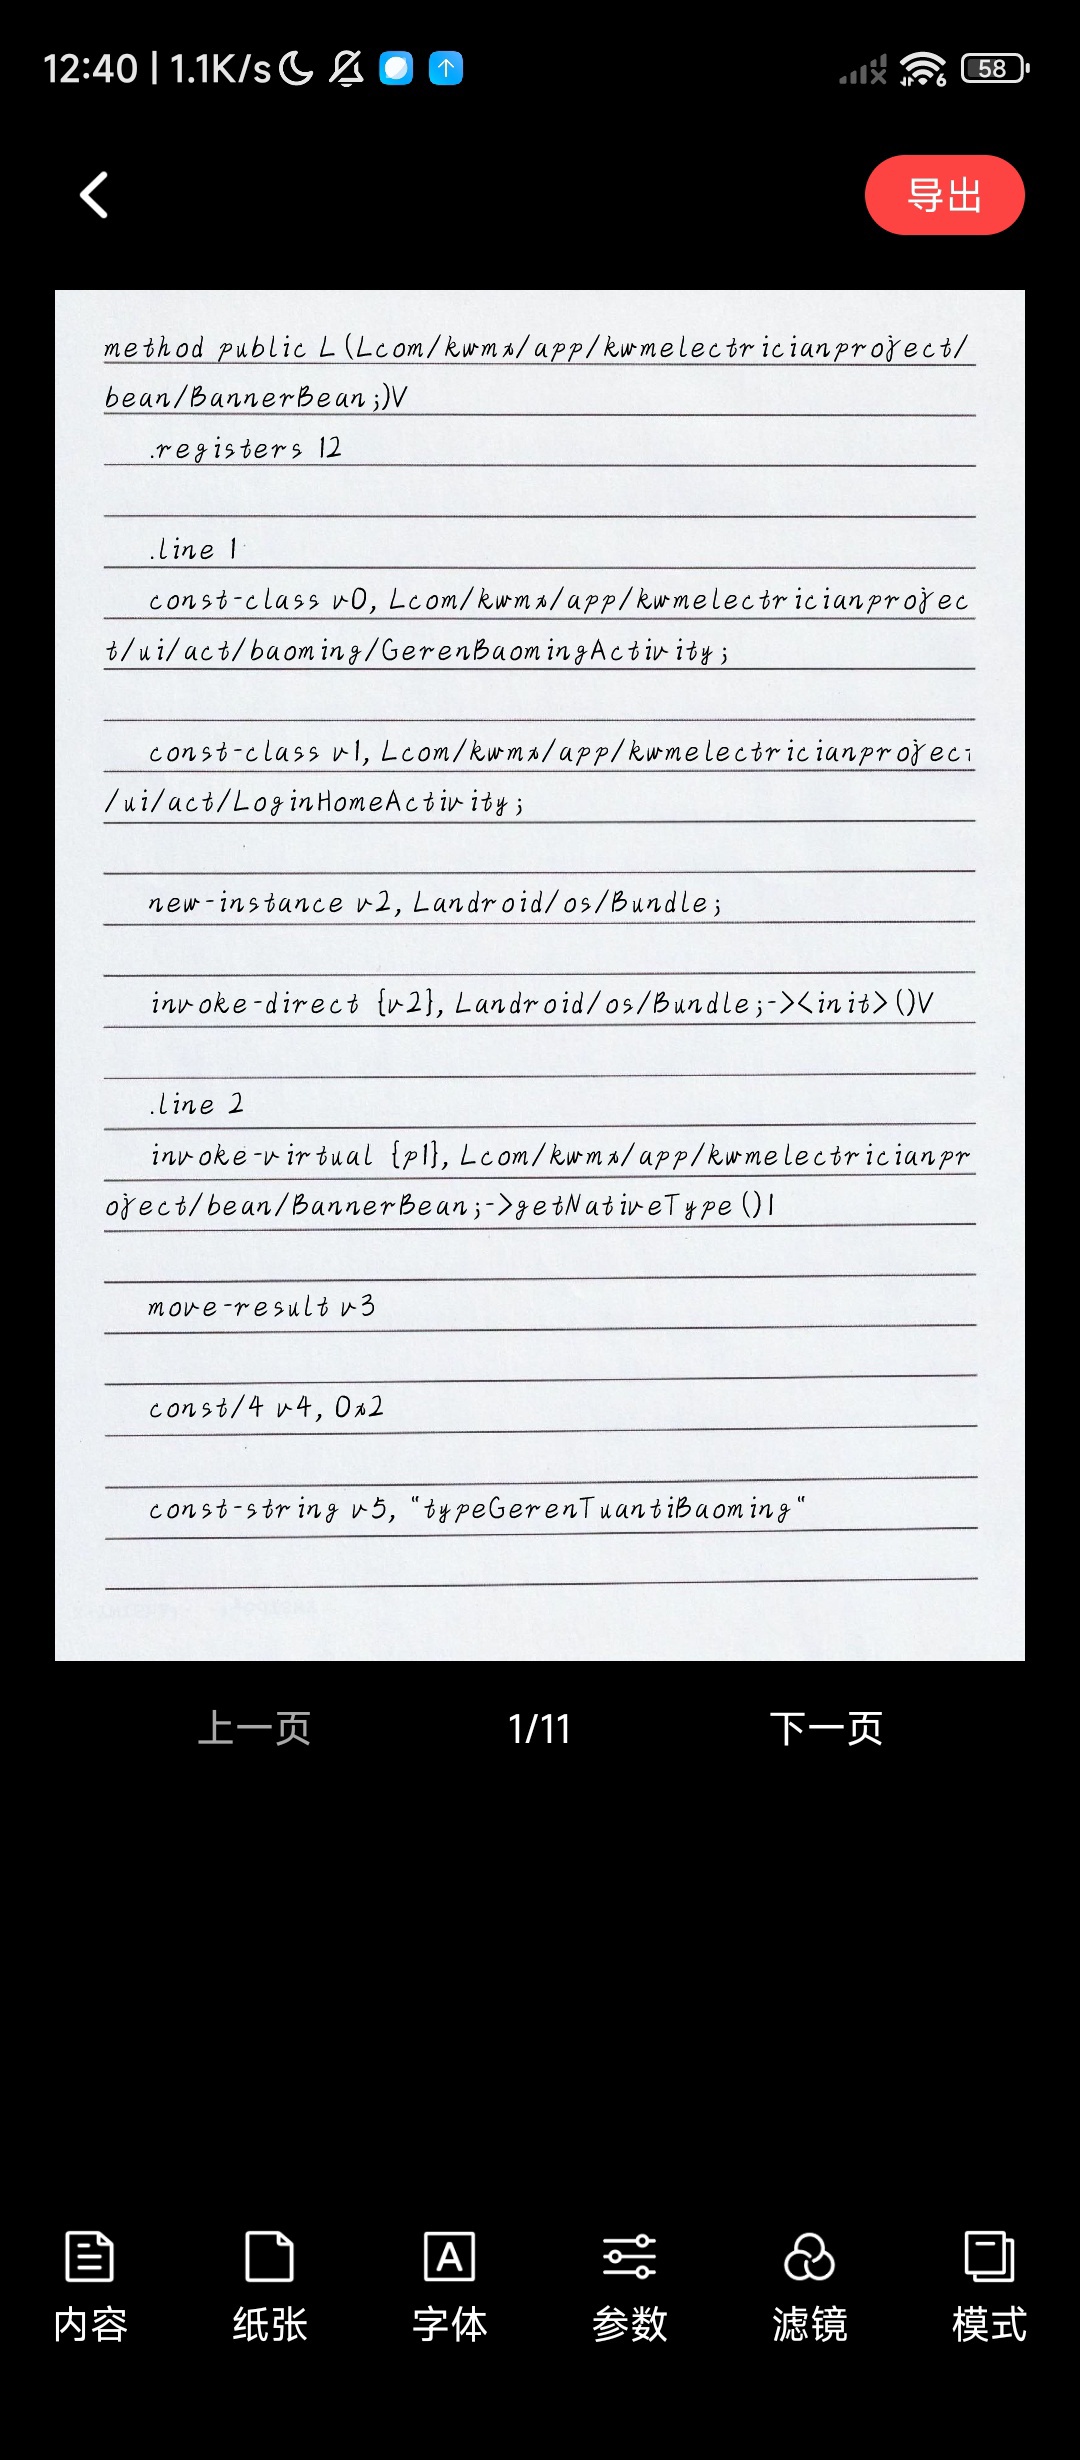 12:40 | 1.1K/s
58
导出
method public L(Lcom/kwmx/app/kwmelectricianproject/
bean/BannerBean;)V
.registers 12
.line 1
const-class v0, Lcom/kwmx/app/kwmelectricianprojec
t/ui/act/baoming/GerenBaomingActivity;
const-class v1, Lcom/kwmx/app/kwmelectricianproject
/ui/act/LoginHomeActivity;
new-instance v2, Landroid/os/Bundle;
invoke-direct {v2}, Landroid/os/Bundle;-><init>()V
.line 2
invoke-virtual {p1}, Lcom/kwmx/app/kwmelectricianpr
oject/bean/BannerBean;->getNativeType()I
move-result v3
const/4 v4, 0x2
const-string v5, "typeGerenTuantiBaoming"
上一页 1/11 下一页
内容 纸张 字体 参数 滤镜 模式